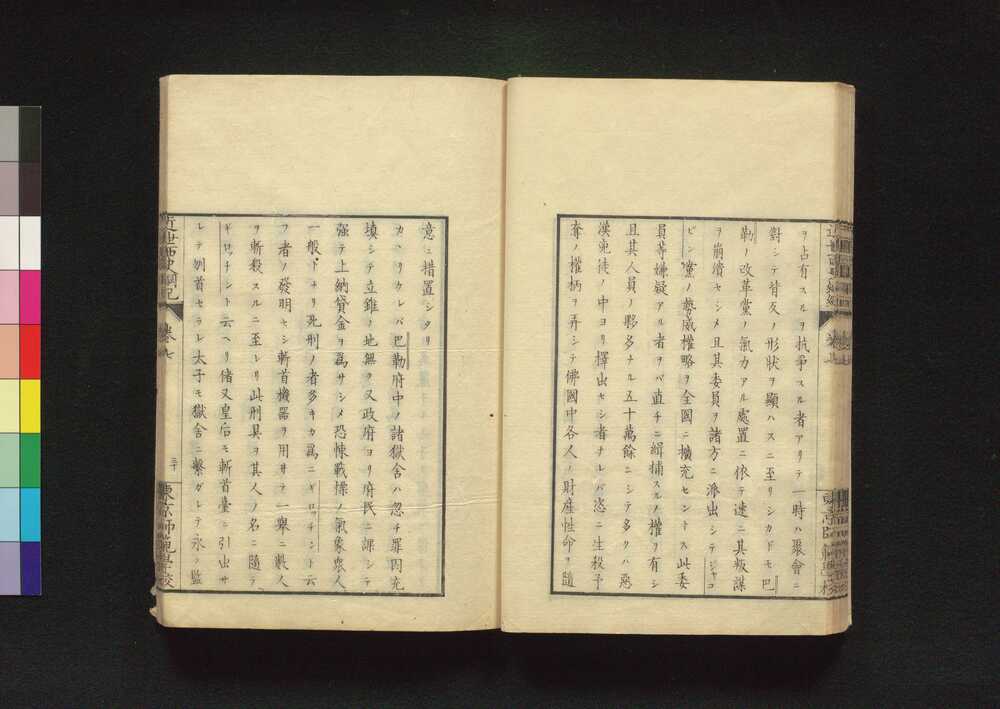 ヲ占有スルヲ抗爭スル者アリテ一時ハ聚會ニ
對シテ背反ノ形狀ヲ顯ハスニ至リシカドモ巴
勒ノ改革黨ノ氣力アル處置ニ依テ速ニ其叛謀
ヲ崩潰セシメ且其委員ヲ諸方ニ派出シテジヤコ
ビン黨ノ勢威權略ヲ全國ニ擴充セントス此委
員等嫌疑アル者ヲバ直チニ緝捕スルノ權ヲ有シ
且其人員ノ夥多ナル五十萬餘ニシテ多クハ惡
漢兇徒ノ中ヨリ擇出セシ者ナレバ恣ニ生殺予
奪ノ權柄ヲ弄シテ佛國中各人ノ財産性命ヲ隨
意ニ措置シタリ
カヽリケレバ巴勒府中ノ諸獄舍ハ忽チ罪囚充
塡シテ立錐ノ地無ク又政府ヨリ府民ニ課シテ
强テ上納貸金ヲ爲サシメ恐怖戰慄ノ氣象衆人
一般トナリ死刑ノ者多キカ爲ニギロツチントト云
フ者ノ發明セシ斬首機器ヲ用ヰテ一擧ニ數人
ヲ斬殺スルニ至レリ此刑具ヲ其人ノ名ニ隨テ
ギロッチントト云ヘリ偖又皇后モ斬首臺ニ引出サ
レテ刎首セラレ太子モ獄舍ニ繫ガレテ永ク監
近世西史綱紀
卷七
三十
東京師範學校